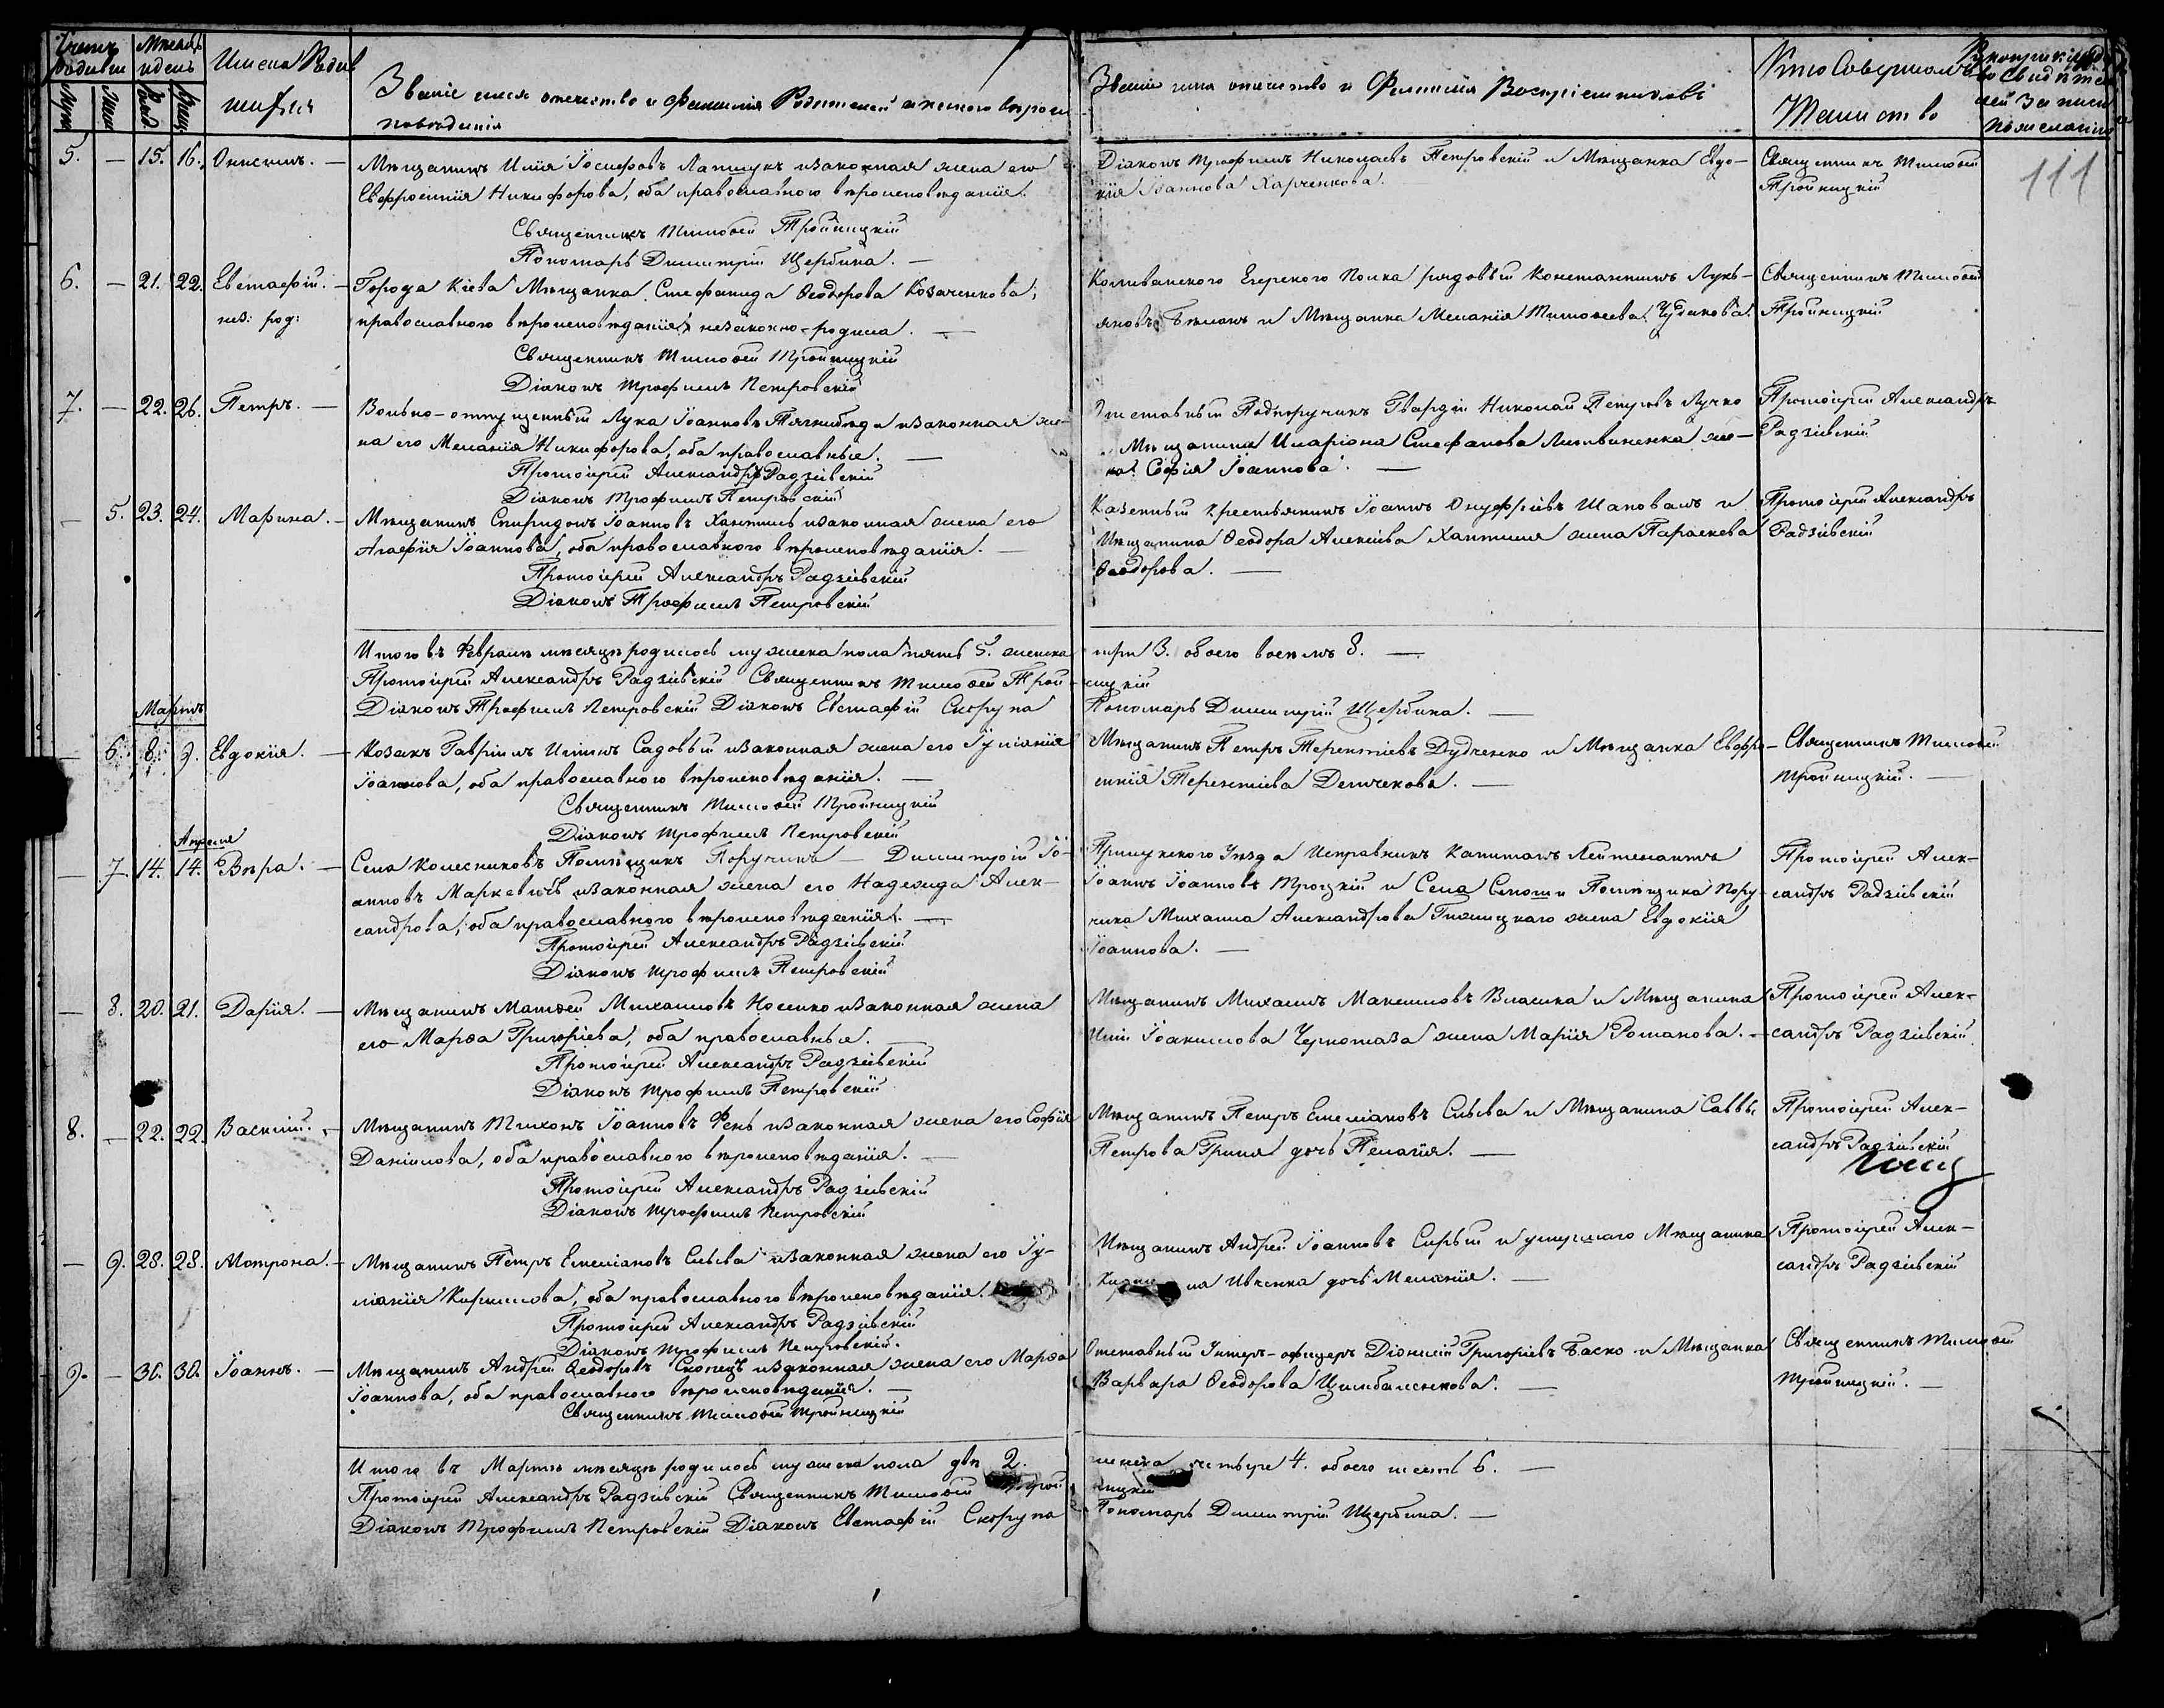 Счетъ родивш
Мѣсяцъ и день
Имена Родив
шихся
Званіе имя отечество и Фамилія Родителей и какого вѣроис
повѣданія
Званіе имя отечество и Фамилія Воспріемниковъ
Кто совершалъ
Таинство
111
5. — 15. 16. Онисимъ. — Мѣщанинъ Илія Іосифовъ Лапшукъ и законная жена его
Евфросинія Никифорова, оба православного вѣроисповѣданія.
Священникъ Тимофей Тройницкій
Пономарь Димитрій Щербина. —
Діаконъ Трофимъ Николаевъ Петровскій и Мѣщанка Евдо-
кія Іоаннова Харченкова.
Священникъ Тимофей
Тройницкій
6. — 21. 22. Евстафій. — Города Кіева Мѣщанка Стефанида Ѳеодорова Козаченкова,
нез: род: православного вѣроисповѣданія, незаконно-родила. —
Священникъ Тимофей Тройницкій
Діаконъ Трофимъ Петровскій
Коливанского Егерского Полка рядовый Константинъ Лукь-
яновъ Бѣлакъ и Мѣщанка Меланія Тимофеева Чудакова.
Священникъ Тимофей
Тройницкій
7. — 22. 26. Петръ. — Вольно-отпущенный Лука Іоанновъ Тягнибѣда и законная же-
на его Меланія Никифорова, оба православные. —
Протоіерей Александръ Радзіевскій
Діаконъ Трофимъ Петровскій
Отставный Подпоручикъ Гвардіи Николай Петровъ Лучко
и Мѣщанина Иларіона Стефанова Литвиненка же-
на Софія Іоаннова. —
Протоіерей Александръ
Радзіевскій
— 5. 23. 24. Марина. — Мѣщанинъ Спиридонъ Іоанновъ Хантиль и законная жена его
Агафія Іоаннова, оба православного вѣроисповѣданія. —
Протоіерей Александръ Радзіевскій
Діаконъ Трофимъ Петровскій
Казенный крестьянинъ Іоаннъ Онуфріевъ Шаповалъ и
Мѣщанина Ѳеодора Алексѣева Хантиля жена Параскева
Ѳеодорова. —
Протоіерей Александръ
Радзіевскій
Итого въ Февралѣ мѣсяцѣ родилось мужеска пола пять 5. женска
три 3. обоего восемь 8. —
Протоіерей Александръ Радзіевскій Священникъ Тимофей Трой-
ницкій
Діаконъ Трофимъ Петровскій Діаконъ Евстафій Скорупа
Пономарь Димитрій Щербина. —
Мартъ
— 6. 8. 9. Евдокія. — Козакъ Гавріилъ Садовый и законная жена его Гуліанія
Іоаннова, оба православного вѣроисповѣданія. —
Священникъ Тимофей Тройницкій
Діаконъ Трофимъ Петровскій
Мѣщанинъ Петръ Терентіевъ Дудченко и Мѣщанка Евфро-
синія Терентіева Демчекова. —
Священникъ Тимофей
Тройницкій. —
Апреля
— 7. 14. 14. Вѣра. — Села Колесниковъ Помѣщикъ Поручикъ — Димитрій Іо-
анновъ Маркевичъ и законная жена его Надежда Алек-
сандрова, оба православного вѣроисповѣданія. —
Протоіерей Александръ Радзіевскій
Діаконъ Трофимъ Петровскій
Прилукского Уѣзда Исправникъ Капитанъ Лейтенантъ
Іоаннъ Іоанновъ Троцкій и Села Смоши Помѣщика Пору-
чика Михаила Александрова Гижицкаго жена Евдокія
Іоаннова. —
Протоіерей Алек-
сандръ Радзіевскій
— 8. 20. 21. Дарія. — Мѣщанинъ Матѳей Михаиловъ Носенко и законная жена
его Марѳа Григоріева, оба православные. —
Протоіерей Александръ Радзіевскій
Діаконъ Трофимъ Петровскій
Мѣщанинъ Михаилъ Максимовъ Власика и Мѣщанина
Иліи Іоакимова Черномаза жена Марія Романова. —
Протоіерей Алек-
сандръ Радзіевскій
8. — 22. 22. Василій. — Мѣщанинъ Тихонъ Іоанновъ Фень и законная жена его Софія
Даніилова, оба православного вѣроисповѣданія. —
Протоіерей Александръ Радзіевскій
Діаконъ Трофимъ Петровскій
Мѣщанинъ Петръ Емеліановъ СиЬва и Мѣщанина Саввы
Петрова Гриня дочь Пелагія. —
Протоіерей Алек-
сандръ Радзіевскій
— 9. 28. 28. Мотрона. — Мѣщанинъ Петръ Емеліановъ и законная жена его Гу-
ліанія Кириллова, оба православного вѣроисповѣданія.
Протоіерей Александръ Радзіевскій
Діаконъ Трофимъ Петровскій.
Мѣщанинъ Андрей Іоанновъ Сирый и умершаго Мѣщанина
Ивченка дочь Меланія. —
Протоіерей Алек-
сандръ Радзіевскій
9. — 30. 30. Іоаннъ. — Мѣщанинъ Андрей Ѳеодоровъ Скопецъ и законная жена его Марѳа
Іоаннова, оба православного вѣроисповѣданія. —
Священникъ Тимофей Тройницкій
Отставный Унтеръ-офицеръ Діонисій Григоріевъ Баско и Мѣщанка
Варвара Ѳеодорова Цимбаленкова. —
Священникъ Тимофей
Тройницкій. —
Итого въ Мартѣ мѣсяцѣ родилось мужеска пола два 2.
женска четыре 4. обоего шесть 6. —
Протоіерей Александръ Радзіевскій Священникъ Тимофей Трой
ницкій
Діаконъ Трофимъ Петровскій Діаконъ Евстафій Скорупа
Пономарь Димитрій Щербина. —